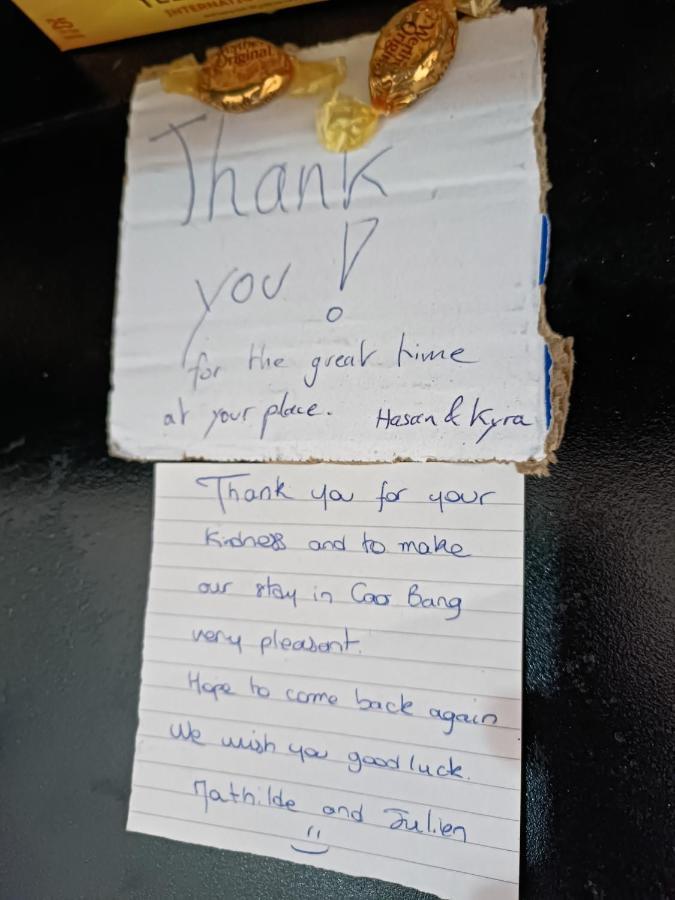 INTERNATIO
Werther's
Original
Werther's
Original
Thank
you !
for the great time
at your place. Hasan & Kyra
Thank you for your
kindness and to make
our stay in Cao Bang
very pleasant.
Hope to come back again
We wish you good luck.
Mathilde and Julien